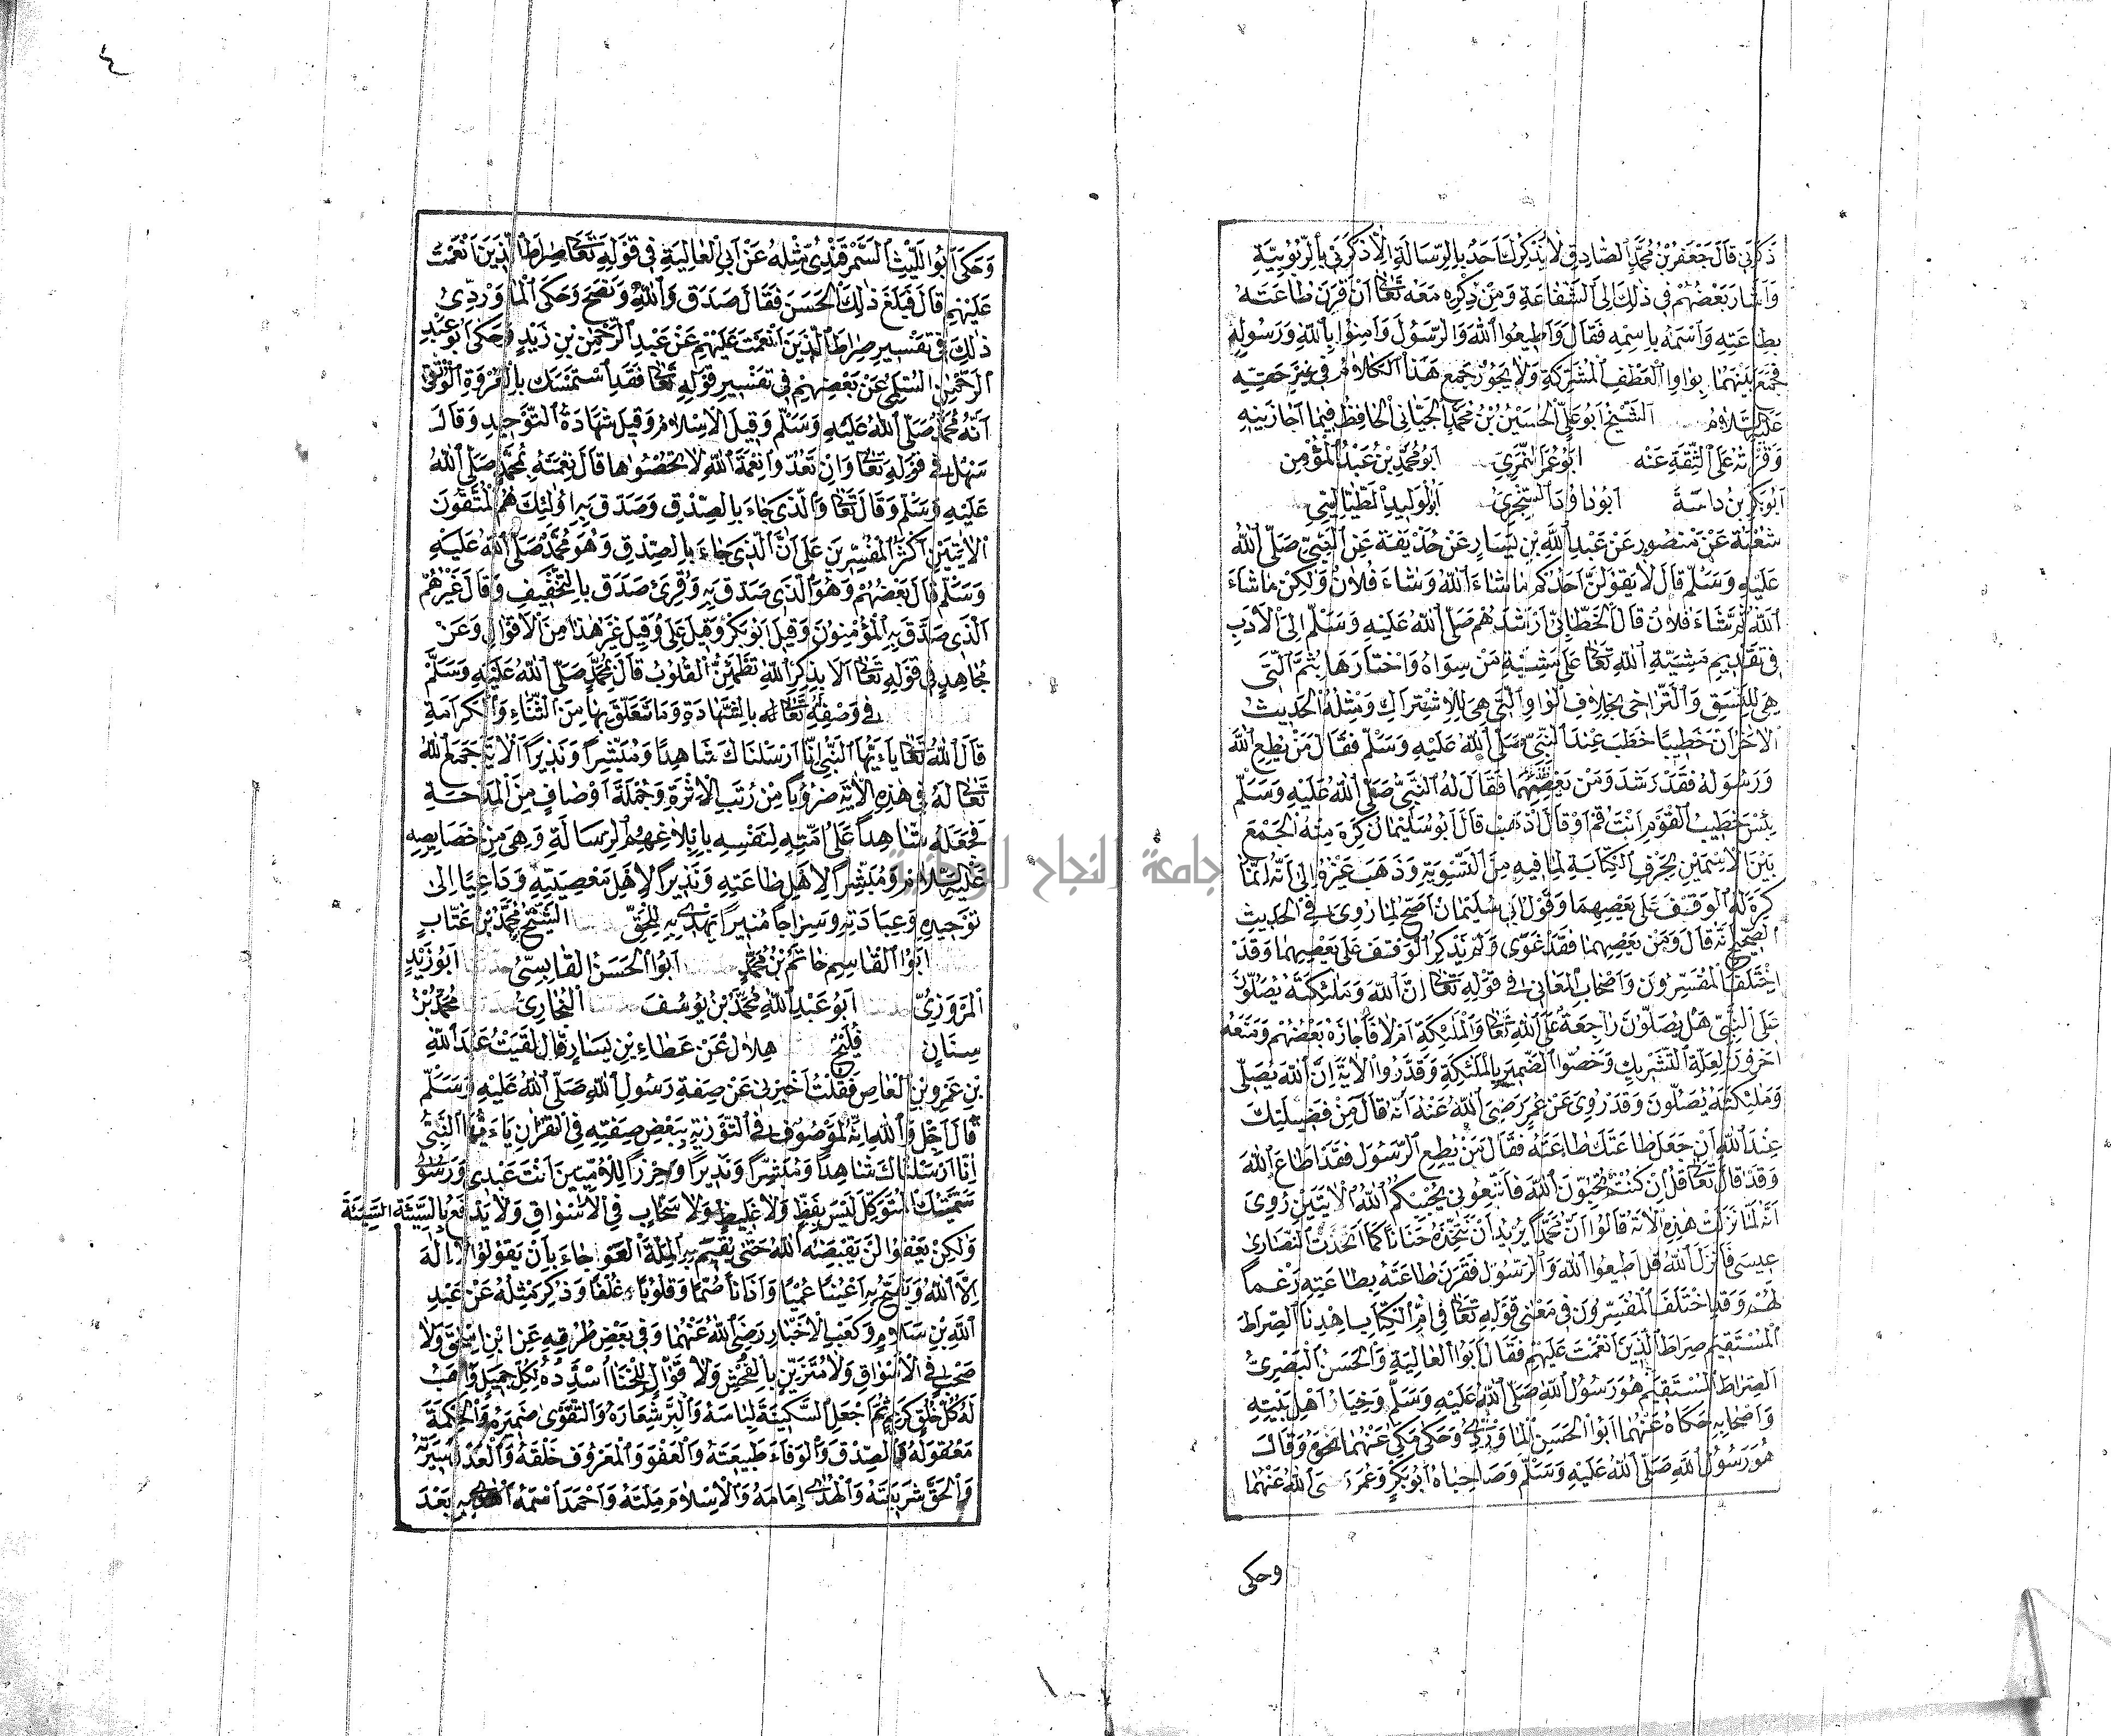 ذَكَرَنِي قَالَ جَعْفَرُ بْنُ مُحَمَّدٍ الصَّادِقِ لَا يَذْكُرُكَ أَحَدٌ بِالرِّسَالَةِ إِلَّا ذَكَرَنِي بِالرُّبُوبِيَّةِ
وَأَشَارَ بَعْضُهُمْ فِي ذَلِكَ إِلَى الشَّفَاعَةِ وَمِنْ ذِكْرِهِ مَعَهُ تَعَالَى أَنْ قَرَنَ طَاعَتَهُ
بِطَاعَتِهِ وَاسْمَهُ بِاسْمِهِ فَقَالَ وَأَطِيعُوا اللَّهَ وَالرَّسُولَ وَآمِنُوا بِاللَّهِ وَرَسُولِهِ
فَجَمَعَ بَيْنَهُمَا بِوَاوِ الْعَطْفِ الْمُشْرِكَةِ وَلَا يَجُوزُ جَمْعُ هَذَا الْكَلَامِ فِي غَيْرِ حَقِّهِ
عَلَيْهِ السَّلَامُ الشَّيْخُ أَبُو عَلِيٍّ الْحُسَيْنُ بْنُ مُحَمَّدٍ الْجَيَّانِي الْحَافِظُ فِيمَا أَجَازَنِيهِ
وَقَرَأْتُهُ عَلَى الثِّقَةِ عَنْهُ أَبُو عُمَرَ النَّمَرِيّ أَبُو مُحَمَّدِ بْنُ عَبْدِ الْمُؤْمِنِ
أَبُو بَكْرِ بْنُ دَاسَةَ أَبُو دَاوُدَ السِّجْزِيُّ أَبُو الْوَلِيدِ الطَّيَالِسِيّ
شُعْبَةُ عَنْ مَنْصُورٍ عَنْ عَبْدِ اللَّهِ بْنِ يَسَارٍ عَنْ حُذَيْفَةَ عَنِ النَّبِيِّ صَلَّى اللَّهُ
عَلَيْهِ وَسَلَّمَ قَالَ لَا يَقُولَنَّ أَحَدُكُمْ مَا شَاءَ اللَّهُ وَشَاءَ فُلَانٌ وَلَكِنْ مَا شَاءَ
اللَّهُ ثُمَّ شَاءَ فُلَانٌ قَالَ الْخَطَّابِيُّ أَرْشَدَهُمْ صَلَّى اللَّهُ عَلَيْهِ وَسَلَّمَ إِلَى الْأَدَبِ
فِي تَقْدِيمِ مَشِيَّةِ اللَّهِ تَعَالَى عَلَى مَشِيَّةِ مَنْ سِوَاهُ وَاخْتَارَهَا بِثُمَّ الَّتِي
هِيَ لِلنَّسَقِ وَالتَّرَاخِي بِخِلَافِ الْوَاوِ الَّتِي هِيَ لِلِاشْتِرَاكِ وَمِثْلُهُ الْحَدِيثُ
الْآخَرُ أَنَّ خَطِيبًا خَطَبَ عِنْدَ النَّبِيِّ صَلَّى اللَّهُ عَلَيْهِ وَسَلَّمَ فَقَالَ مَنْ يُطِعِ اللَّهَ
وَرَسُولَهُ فَقَدْ رَشَدَ وَمَنْ يَعْصِهِمَا فَقَالَ لَهُ النَّبِيُّ صَلَّى اللَّهُ عَلَيْهِ وَسَلَّمَ
بِئْسَ خَطِيبُ الْقَوْمِ أَنْتَ قُمْ أَوْ قَالَ اذْهَبْ قَالَ أَبُو سُلَيْمَانَ كَرِهَ مِنْهُ الْجَمْعَ
بَيْنَ الِاسْمَيْنِ بِحَرْفِ الْكِنَايَةِ لِمَا فِيهِ مِنَ التَّسْوِيَةِ وَذَهَبَ غَيْرُهُ إِلَى أَنَّهُ إِنَّمَا
كَرِهَ لَهُ الْوَقْفَ عَلَى يَعْصِهِمَا وَقَوْلُ أَبِي سُلَيْمَانَ أَصَحُّ لِمَا رُوِيَ فِي الْحَدِيثِ
الصَّحِيحِ أَنَّهُ قَالَ وَمَنْ يَعْصِهِمَا فَقَدْ غَوَى وَلَمْ يَذْكُرِ الْوَقْفَ عَلَى يَعْصِهِمَا وَقَدْ
اخْتَلَفَ الْمُفَسِّرُونَ وَأَصْحَابُ الْمَعَانِي فِي قَوْلِهِ تَعَالَى إِنَّ اللَّهَ وَمَلَئِكَتَهُ يُصَلُّونَ
عَلَى النَّبِيِّ هَلْ يُصَلُّونَ رَاجِعَةٌ عَلَى اللَّهِ تَعَالَى وَالْمَلَئِكَةِ أَمْ لَا فَأَجَازَهُ بَعْضُهُمْ وَمَنَعَهُ
آخَرُونَ لِعِلَّةِ التَّشْرِيكِ وَخَصُّوا الضَّمِيرَ بِالْمَلَئِكَةِ وَقَدَّرُوا الْآيَةَ إِنَّ اللَّهَ يُصَلِّي
وَمَلَئِكَتُهُ يُصَلُّونَ وَقَدْ رُوِيَ عَنْ عُمَرَ رَضِيَ اللَّهُ عَنْهُ أَنَّهُ قَالَ مِنْ فَضِيلَتِكَ
عِنْدَ اللَّهِ أَنْ جَعَلَ طَاعَتَكَ طَاعَتَهُ فَقَالَ مَنْ يُطِعِ الرَّسُولَ فَقَدْ أَطَاعَ اللَّهَ
وَقَدْ قَالَ تَعَالَى قُلْ إِنْ كُنْتُمْ تُحِبُّونَ اللَّهَ فَاتَّبِعُونِي يُحْبِبْكُمُ اللَّهُ الْآيَتَيْنِ رُوِيَ
أَنَّهُ لَمَّا نَزَلَتْ هَذِهِ الْآيَةُ قَالُوا أَنَّ مُحَمَّدًا يُرِيدُ أَنْ نَتَّخِذَهُ حَنَانًا كَمَا اتَّخَذَتِ النَّصَارَى
عِيسَى فَأَنْزَلَ اللَّهُ قُلْ أَطِيعُوا اللَّهَ وَالرَّسُولَ فَقَرَنَ طَاعَتَهُ بِطَاعَتِهِ رَغْمًا
لَهُمْ وَقَدِ اخْتَلَفَ الْمُفَسِّرُونَ فِي مَعْنَى قَوْلِهِ تَعَالَى فِي أُمِّ الْكِتَابِ اهْدِنَا الصِّرَاطَ
الْمُسْتَقِيمَ صِرَاطَ الَّذِينَ أَنْعَمْتَ عَلَيْهِمْ فَقَالَ أَبُو الْعَالِيَةِ وَالْحَسَنُ الْبَصْرِيُّ
الصِّرَاطَ الْمُسْتَقِيمَ هُوَ رَسُولُ اللَّهِ صَلَّى اللَّهُ عَلَيْهِ وَسَلَّمَ وَخِيَارُ أَهْلِ بَيْتِهِ
وَأَصْحَابِهِ حَكَاهُ عَنْهُمَا أَبُو الْحَسَنِ الْمَاوَرْدِيُّ وَحَكَى مَكِّيٌّ عَنْهُمَا نَحْوَهُ وَقَالَ
هُوَ رَسُولُ اللَّهِ صَلَّى اللَّهُ عَلَيْهِ وَسَلَّمَ وَصَاحِبَاهُ أَبُو بَكْرٍ وَعُمَرَ اللَّهُ عَنْهُمَا
وحكى
٤
وَحَكَى أَبُو اللَّيْثِ السَّمَرْقَنْدِيُّ مِثْلَهُ عَنْ أَبِي الْعَالِيَةِ فِي قَوْلِهِ تَعَالَى صِرَاطَ الَّذِينَ أَنْعَمْتَ
عَلَيْهِمْ قَالَ فَبَلَغَ ذَلِكَ الْحَسَنَ فَقَالَ صَدَقَ وَاللَّهِ وَنَصَحَ وَحَكَى الْمَاوَرْدِيُّ
ذَلِكَ فِي تَفْسِيرِ صِرَاطَ الَّذِينَ أَنْعَمْتَ عَلَيْهِمْ عَنْ عَبْدِ الرَّحْمَنِ بْنِ زَيْدٍ وَحَكَى أَبُو عَبْدِ
الرَّحْمَنِ السُّلَمِيُّ عَنْ بَعْضِهِمْ فِي تَفْسِيرِ قَوْلِهِ تَعَالَى فَقَدِ اسْتَمْسَكَ بِالْعُرْوَةِ الْوُثْقَى
أَنَّهُ مُحَمَّدٌ صَلَّى اللَّهُ عَلَيْهِ وَسَلَّمَ وَقِيلَ الْإِسْلَامُ وَقِيلَ شَهَادَةُ التَّوْحِيدِ وَقَالَ
سَهْلٌ فِي قَوْلِهِ تَعَالَى وَإِنْ تَعُدُّوا نِعْمَةَ اللَّهِ لَا تُحْصُوهَا قَالَ نِعْمَتَهُ بِمُحَمَّدٍ صَلَّى اللَّهُ
عَلَيْهِ وَسَلَّمَ وَقَالَ تَعَالَى وَالَّذِي جَاءَ بِالصِّدْقِ وَصَدَّقَ بِهِ أُولَئِكَ هُمُ الْمُتَّقُونَ
الْآيَتَيْنِ أَكْثَرُ الْمُفَسِّرِينَ عَلَى أَنَّ الَّذِي جَاءَ بِالصِّدْقِ وَهُوَ مُحَمَّدٌ صَلَّى اللَّهُ عَلَيْهِ
وَسَلَّمَ قَالَ بَعْضُهُمْ وَهُوَ الَّذِي صَدَّقَ بِهِ وَقُرِئَ صَدَقَ بِالتَّخْفِيفِ وَقَالَ غَيْرُهُمْ
الَّذِي صَدَّقَ بِهِ الْمُؤْمِنُونَ وَقِيلَ أَبُو بَكْرٍ وَقِيلَ عَلِيٌّ وَقِيلَ غَيْرُ هَذَا مِنَ الْأَقْوَالِ وَعَنْ
مُجَاهِدٍ فِي قَوْلِهِ تَعَالَى أَلَا بِذِكْرِ اللَّهِ تَطْمَئِنُّ الْقُلُوبُ قَالَ بِمُحَمَّدٍ صَلَّى اللَّهُ عَلَيْهِ وَسَلَّمَ
فِي وَصْفِهِ تَعَالَى لَهُ بِالشَّهَادَةِ وَمَا تَعَلَّقَ بِهَا مِنَ الثَّنَاءِ وَالْكَرَامَةِ
قَالَ اللَّهُ تَعَالَى يَاءَيُّهَا النَّبِيُّ إِنَّا أَرْسَلْنَاكَ شَاهِدًا وَمُبَشِّرًا وَنَذِيرًا الْآيَةَ جَمَعَ اللَّهُ
تَعَالَى لَهُ فِي هَذِهِ الْآيَةِ ضُرُوبًا مِنْ رُتَبِ الْأَثَرَةِ وَجُمْلَةَ أَوْصَافٍ مِنَ الْمِدْحَةِ
فَجَعَلَهُ شَاهِدًا عَلَى أُمَّتِهِ لِنَفْسِهِ بِإِبْلَاغِهِمُ الرِّسَالَةِ وَهِيَ مِنْ خَصَايِصِهِ
عَلَيْهِ السَّلَامُ وَمُبَشِّرًا لِأَهْلِ طَاعَتِهِ وَنَذِيرًا لِأَهْلِ مَعْصِيَتِهِ وَدَاعِيًا إِلَى
تَوْحِيدِهِ وَعِبَادَتِهِ وَسِرَاجًا مُنِيرًا يُهْتَدَى بِهِ لِلْحَقِّ الشَّيْخُ مُحَمَّدُ بْنُ عَتَّابٍ
أَبُو الْقَاسِمِ حَاتِمُ بْنُ مُحَمَّدٍ أَبُو الْحَسَنِ الْقَابِسِيُّ أَبُو زَيْدٍ
الْمَرْوَزِيُّ أَبُو عَبْدِ اللَّهِ مُحَمَّدُ بْنُ يُوسُفَ الْبُخَارِيُّ مُحَمَّدُ بْنُ
سِنَانٍ فُلَيْحٌ هِلَالٌ عَنْ عَطَاءِ بْنِ يَسَارٍ قَالَ لَقِيتُ عَبْدَ اللَّهِ
بْنَ عَمْرِو بْنِ الْعَاصِ فَقُلْتُ أَخْبِرْنِي عَنْ صِفَةِ رَسُولِ اللَّهِ صَلَّى اللَّهُ عَلَيْهِ وَسَلَّمَ
قَالَ أَجَلْ وَاللَّهِ إِنَّهُ لَمَوْصُوفٌ فِي التَّوْرَيةِ بِبَعْضِ صِفَتِهِ فِي الْقُرْآنِ يَاءَيُّهَا النَّبِيُّ
إِنَّا أَرْسَلْنَاكَ شَاهِدًا وَمُبَشِّرًا وَنَذِيرًا وَحِرْزًا لِلْأُمِّيِّينَ أَنْتَ عَبْدِي وَرَسُولِي
سَمَّيْتُكَ الْمُتَوَكِّلَ لَيْسَ بِفَظٍّ وَلَا غَلِيظٍ وَلَا سَخَّابٍ فِي الْأَسْوَاقِ وَلَا يَدْفَعُ بِالسَّيِّئَةِ السَّيِّئَةَ
وَلَكِنْ يَعْفُو لَنْ يَقْبِضَهُ اللَّهُ حَتَّى يُقِيمَ بِهِ الْمِلَّةَ الْعَوْجَاءَ بِأَنْ يَقُولُوا لَا إِلَهَ
إِلَّا اللَّهُ وَيَفْتَحُ بِهِ أَعْيُنًا عُمْيًا وَآذَانًا صُمًّا وَقُلُوبًا غُلْفًا وَذُكِرَ مِثْلُهُ عَنْ عَبْدِ
اللَّهِ بْنِ سَلَامٍ وَكَعْبِ الْأَحْبَارِ رَضِيَ اللَّهُ عَنْهُمَا وَفِي بَعْضِ طُرُقِهِ عَنِ ابْنِ إِسْحَقَ وَلَا
صَخِبٍ فِي الْأَسْوَاقِ وَلَا مُتَزَيِّنٍ بِالْفُحْشِ وَلَا قَوَّالٍ لِلْخَنَا أُسَدِّدُهُ لِكُلِّ جَمِيلٍ وَأَهَبُ
لَهُ كُلَّ خُلُقٍ كَرِيمٍ ثُمَّ أَجْعَلُ السَّكِينَةَ لِبَاسَهُ وَالْبِرَّ شِعَارَهُ وَالتَّقْوَى ضَمِيرَهُ وَالْحِكْمَةَ
مَعْقُولَهُ وَالصِّدْقَ وَالْوَفَاءَ طَبِيعَتَهُ وَالْعَفْوَ وَالْمَعْرُوفَ خُلُقَهُ وَالْعَدْلَ سِيرَتَهُ
وَالْحَقَّ شَرِيعَتَهُ وَالْهُدَى إِمَامَهُ وَالْإِسْلَامَ مِلَّتَهُ وَأَحْمَدَ اسْمَهُ أَهْدِي بِهِ بَعْدَ
جامعة النجاح الوطنية